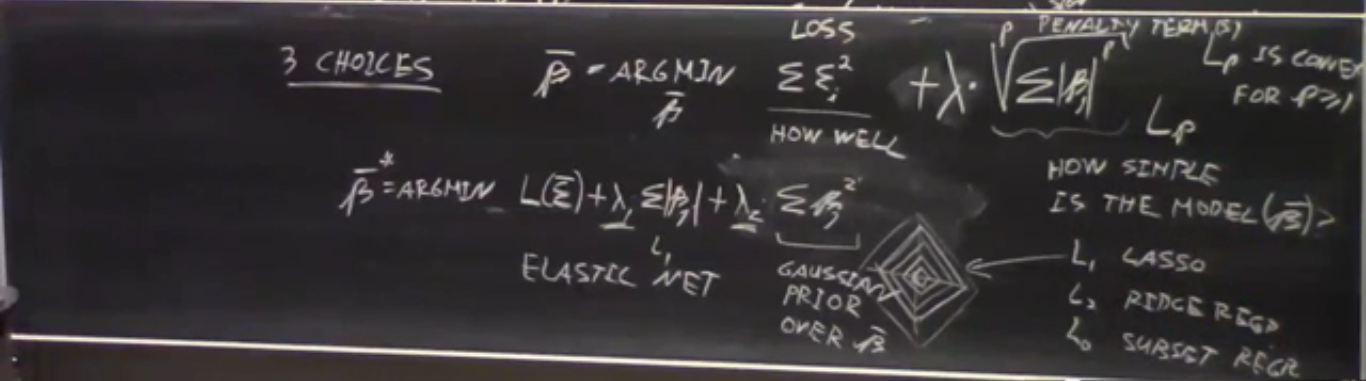 3 CHOICES
β̄ = ARGMIN Σ ξᵢ² + λ · ᵖ√Σ|βⱼ|ᵖ
β̄
LOSS
HOW WELL
PENALTY TERM(S)
Lₚ
Lₚ IS CONVEX
FOR P≥1
HOW SIMPLE
IS THE MODEL (β̄)?
β̄* = ARGMIN L(ξ̄) + λ₁ Σ|βⱼ| + λ₂ · Σ βⱼ²
L₁
ELASTIC NET
GAUSSIAN
PRIOR
OVER β̄
L₁ LASSO
L₂ RIDGE REGR
L₀ SUBSET REGR